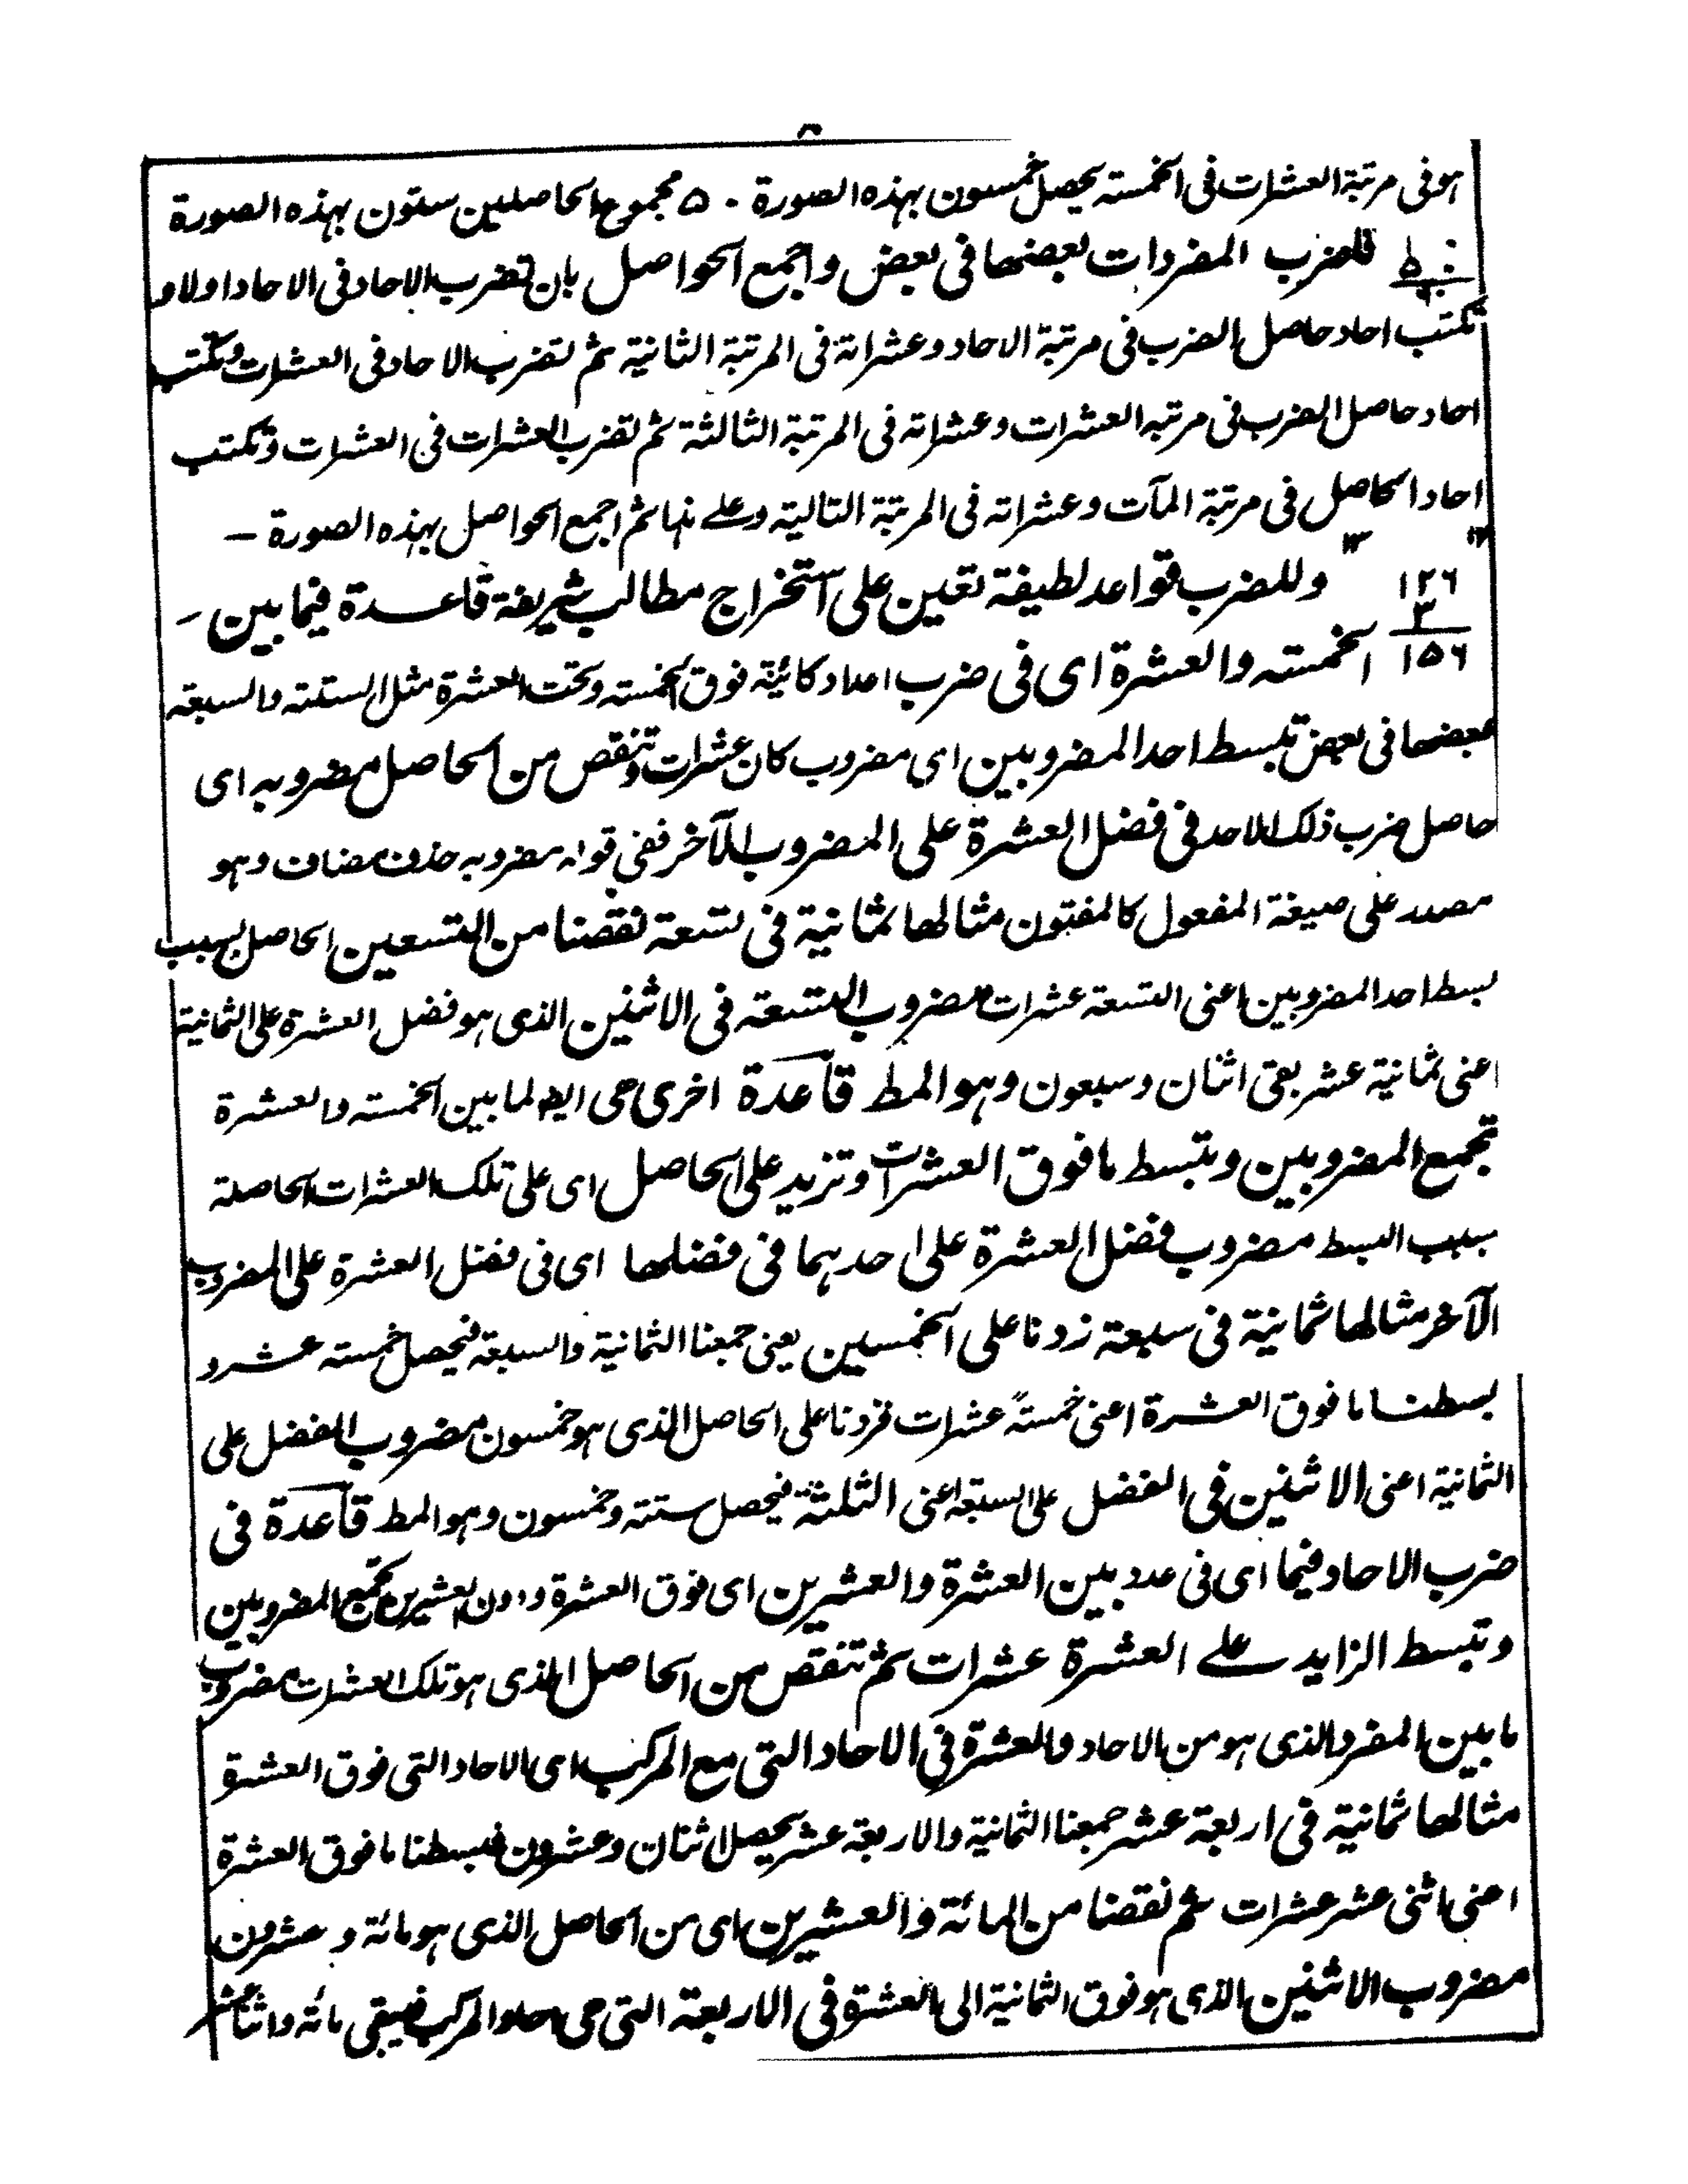 ٨
هو فى مرتبة العشرات فى الخمسته يحصل خمسون بهذه الصورة ۵۰ فمجموع الحاصلين ستون بهذه الصورة
فاضرب المفردات بعضها فى بعض واجمع الحواصل بان تضرب الاحاد فى الاحاد اولا و
تكتب احاد حاصل الضرب فى مرتبة الاحاد وعشراته فى المرتبة الثانية ثم تضرب الاحاد فى العشرات وتكتب
احاد حاصل الضرب فى مرتبه العشرات وعشراته فى المرتبة الثالثة ثم تضرب العشرات فى العشرات وتكتب
احاد الحاصل فى مرتبة المآت وعشراته فى المرتبة التالية وعلے هذا ثم اجمع الحواصل بهذه الصورة ــ
۱۲ ۱۳
۱۲۶ وللضرب قواعد لطيفة تعين على استخراج مطالب شريفة قاعدة فيما بين
۳
۱۵۶ الخمسته والعشرة اى فى ضرب اعداد كائنة فوق الخمسته وتحت العشرة مثل الستته والسبعته
بعضها فى بعض تبسط احد المضروبين اى مضروب كان عشرات وتنقص من الحاصل مضروبه اى
حاصل ضرب ذلك الاحد فى فضل العشرة على المضروب الآخر ففى قوله مضروبه حذف مضاف وهو
مصدر على صيغة المفعول كالمفتون مثالها ثمانية فى تسعة نقصنا من التسعين الحاصل بسبب
بسط احد المضروبين اعنى التسعة عشرات مضروب التسعة فى الاثنين الذى هو فضل العشرة على الثمانية
اعنى ثمانية عشر بقى اثنان وسبعون وهو المط قاعدة اخرى هى ايضا لما بين الخمسته والعشرة
تجمع المضروبين وتبسط ما فوق العشرات وتزيد على الحاصل اى على تلك العشرات الحاصلة
بسبب البسط مضروب فضل العشرة على احدهما فى فضلها اى فى فضل العشرة على المضروب
الآخر مثالها ثمانية فى سبعة زدنا على الخمسين يعنى جمعنا الثمانية والسبعة فيحصل خمسته عشر و
بسطنا ما فوق العشرة اعنى خمستة عشرات فزدنا على الحاصل الذى هو خمسون مضروب الفضل على
الثمانية اعنى الاثنين فى الفضل على السبعة اعنى الثلثة فيحصل ستته وخمسون وهو المط قاعدة فى
ضرب الاحاد فيما اى فى عدد بين العشرة والعشرين اى فوق العشرة ودون العشرين تجمع المضروبين
وتبسط الزايد علے العشرة عشرات ثم تنقص من الحاصل الذى هو تلك العشرات مضروب
ما بين المفرد الذى هو من الاحاد والعشرة فى الاحاد التى مع المركب اى الاحاد التى فوق العشرة
مثالها ثمانية فى اربعة عشر جمعنا الثمانية والاربعة عشر يحصل اثنان وعشرون فبسطنا ما فوق العشرة
اعنى اثنى عشر عشرات ثم نقصنا من المائة والعشرين اى من الحاصل الذى هو مائة وعشرون
مضروب الاثنين الذى هو فوق الثمانية الى العشرة فى الاربعة التى هى احاد المركب فيبقى مائة واثنا عشر